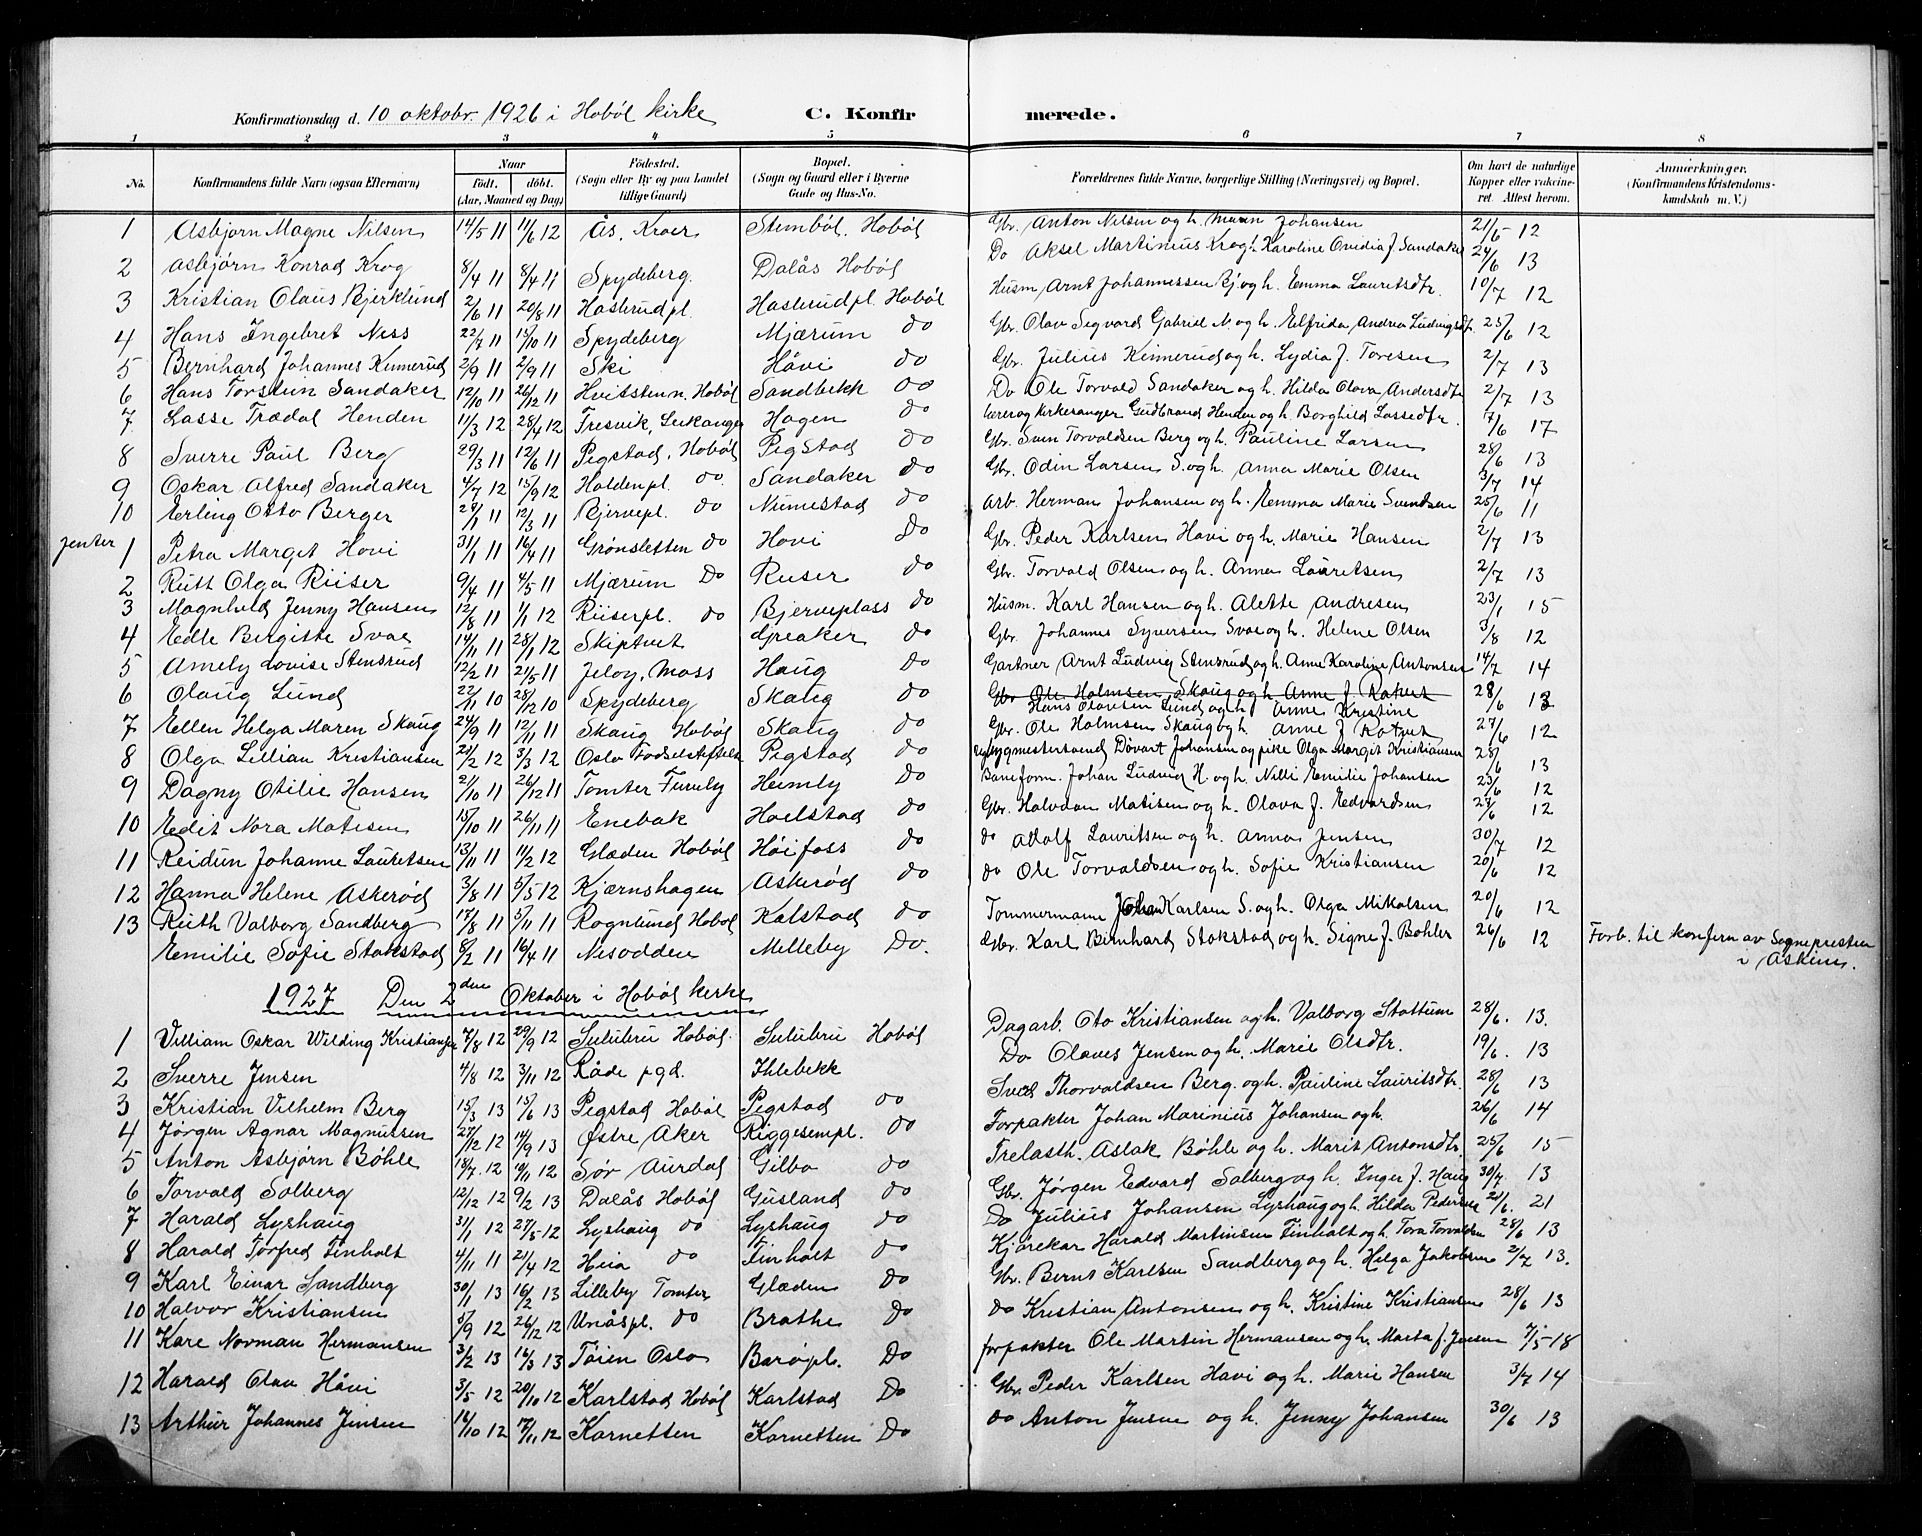 Konfirmationsdag d. 10 oktobr. 1926 i Hobøl kirke C. Konfirmerede.
1 2 3 4 5 6 7 8
No. Konfirmandens fulde Navn (ogsaa Efternavn) Naar født. døbt. (Aar, Maaned og Dag) Fødested. (Sogn eller By og paa Landet tillige Gaard) Bopæl. (Sogn og Gaard eller i Byerne Gade og Hus-No. Forældrenes fulde Navne, borgerlige Stilling (Næringsvei) og Bopæl. Om havt de naturlige Kopper eller vakcineret. Attest herom. Anmærkninger. (Konfirmandens Kristendomskundskab m. V.)
1 Asbjørn Magne Nilsen 14/5 11 11/6 12 Ås, Kroer Stenbøl, Hobøl Gbr. Anton Nilsen og h. Johansen 21/5 12
2 Asbjørn Konrad Krog 8/4 11 8/4 11 Spydeberg. Dalås Hobøl Do Aksel Martinius Krog h. Karoline Ovidia J. Sandaker 24/6 13
3 Kristian Olaus Bjerklund 2/6 11 20/8 11 Hasterudpl. Hasterudpl. Hobøl Husm. Arnt Johannessen Bj. og h. Emma Lauritsdtr. 10/7 12
4 Hans Ingebret Ness 22/7 11 15/10 11 Spydeberg Mjærum do Gbr. Olav Segvard Gabriel N. og h. Elfrida Andrea Ludvigsdtr. 25/6 12
5 Bernhard Johannes Kinnerud 2/9 11 2/9 11 Ski Håvi do Gbr. Julius Kinnerud og h. Lydia J. Toresen 2/7 13
6 Hans Torstein Sandaker 12/10 11 26/12 11 Hvitsten, Hobøl Sandbekk do Do Ole Torvald Sandaker og h. Hilda Olava Andersdtr 2/7 13
7 Lasse Trædal Henden 11/3 12 28/4 12 Fresvik, Leikanger Hagen do lærer og kirkesanger Gudbrand Henden og h. Borghild Lassedtr. 7/6 17
8 Sverre Paul Berg 29/3 11 12/6 11 Pegstad, Hobøl Pegstad do Gbr. Sven Torvaldsen Berg og h. Pauline Larsen 28/6 13
9 Oskar Alfred Sandaker 4/7 12 15/9 12 Holdenpl. do. Sandaker do Gbr. Odin Larsen S. og h. Anna Marie Olsen 3/7 14
10 Erling Otto Berger 24/1 11 12/3 11 Bjervepl. do Numestad do Arb. Herman Johansen og h. Emma Marie Svendsen 25/6 11
jenter 1 Petra Margit Hovi 31/1 11 16/4 11 Grønsletten do Hovi do Gbr. Peder Karlsen Havi og h. Marie Hansen 2/7 13
2 Rutt Olga Riiser 9/4 11 4/5 11 Mjærum Do Ruser do Gbr. Torvald Olsen og h. Anna Lauritsen 2/7 13
3 Magnhild Jenny Hansen 12/8 11 1/1 12 Riiserpl. do Bjerveplass do Husm. Karl Hansen og h. Alette Andresen 23/1 15
4 Edle Bergitte Svae 14/11 11 28/1 12 Skiptvet Greaker do Gbr. Johannes Syversen Svae og h. Helene Olsen 3/8 12
5 Amely Lovise Stensrud 12/2 11 21/5 11 Jeløy, Moss Haug do Gartner Arnt Ludvig Stensrud og h. Anne Karoline Antonsen 14/7 14
6 Olaug Lund 22/11 10 28/12 10 Spydeberg Skaug do Gbr Ole Holmsen Skaug og h. Anne J. Rakut 28/6 13
Hans Olavsen Lund og h Anne Kristine
7 Ellen Helga Maren Skaug 24/9 11 12/11 11 Skaug Hobøl Skaug do Gbr. Ole Holmsen Skaug og h. Anne J 27/6 12
8 Olga Lillian Kristiansen 21/2 12 3/3 12 Oslo Pegstad do Johansen og pike Olga Margit Kristiansen 28/6 13
9 Dagny Otilie Hansen 21/10 11 26/12 11 Tomter Furuly Heimly Do Baneform. Johan Ludvig H. og h. Nilli Emilie Johansen 23/6 12
10 Edit Nora Matisen 15/10 11 26/11 11 Enebak Hoelstad do Gbr. Halvdan Matisen og h. Olava J. Edvardsen 27/6 12
11 Reidun Johanne Lauretsen 13/11 11 11/2 12 Glæden Hobøl Høifoss do do Adolf Lauritsen og h. Anna Jensen 30/7 12
12 Hanna Helene Askerød 3/8 11 5/5 12 Kjærnshagen Askerød do do Ole Torvaldsen og h. Sofie Kristiansen 20/6 12
13 Ruth Valborg Sandberg 17/8 11 5/11 11 Rognlund Hobøl Kalstad do Tømmermann Johan Karlsen S. og h. Olga Mikalsen 20/6 12
Emilie Sofie Stokstad 8/2 11 16/4 11 Nesodden Melleby Do. Gbr. Karl Bernhard Stokstad og h. Signe J. Bøhler 26/6 12 Forb. til konferm av Sognepresten i Askim.
1927 Den 2den Oktober i Hobøl kirke
1 Villiam Oskar Wilding Kristiansen 7/8 12 29/9 12 Sulubru Hobøl. Sulubru Hobøl Dagarb. Oto Kristiansen og h. Valborg Stottum 28/6. 13.
2 Sverre Jensen 4/8 12 3/11 12 Råde pgd. Ihlebekk Do Olaves Jensen og h. Marie Olsdtr. 19/6. 13
3 Kristian Vilhelm Berg 15/3 13 15/6 13 Pegstad Hobøl Pegstad do Sved Thorvaldsen Berg. og h. Pauline Lauritsdtr. 28/6 13
4 Jørgen Agnar Magnussen 27/12 12 14/9 13 Østre Aker Riggesempl. do Forpakter Johan Marinius Johansen og h. 26/6 14
5 Anton Asbjørn Bøhle 18/7. 12 10/11 12 Sør Aurdal Gilbo do Trelasth. Aslak Bøhle og h. Marit Antonsdtr. 25/6 15
6 Torvald Solberg 12/12 12 9/2 13 Dalås Hobøl Gusland do Gbr. Jørgen Edvard Solberg og h. Inger J. Haug 30/7 13
7 Harald Lyshaug 31/1 12 27/5 12 Lyshaug do Lyshaug do Do Julius Johansen Lyshaug og h. Hilda Pedersen 21/6. 21
8 Harald Torfred Finholt 4/11 11 21/4 12 Heia do Finholt do Kjørekar Harald Martinsen Finholt og h. Tora Torvaldsen 28/6 13
9 Karl Einar Sandberg 30/1 13 16/2 13 Lilleby Tomter Glæden do Gbr. Bernt Karlsen Sandberg og h. Helga Jakobsen 2/7 13.
10 Halvor Kristiansen 5/9 12 26/12 12 Unåspl. do Brathe do do Kristian Antonsen og h. Kristine Kristiansen 28/6 13
11 Kare Norman Hermansen 3/2 13 16/3 13 Tøien Oslo Barøpl. Do forpakter Ole Martin Hermansen og h. Marta J. Jensen 7/5-18
12 Harald Olav Håvi 3/5 12 20/10 12 Karlstad Hobøl Karlstad Do Gbr. Peder Karlsen Havi og h. Marie Hansen 3/7 14
13 Arthur Johannes Jensen 16/10 12 17/11 12 Kornetten Kornetten Do do Anton Jensen og h. Jenny Johansen 30/6 13